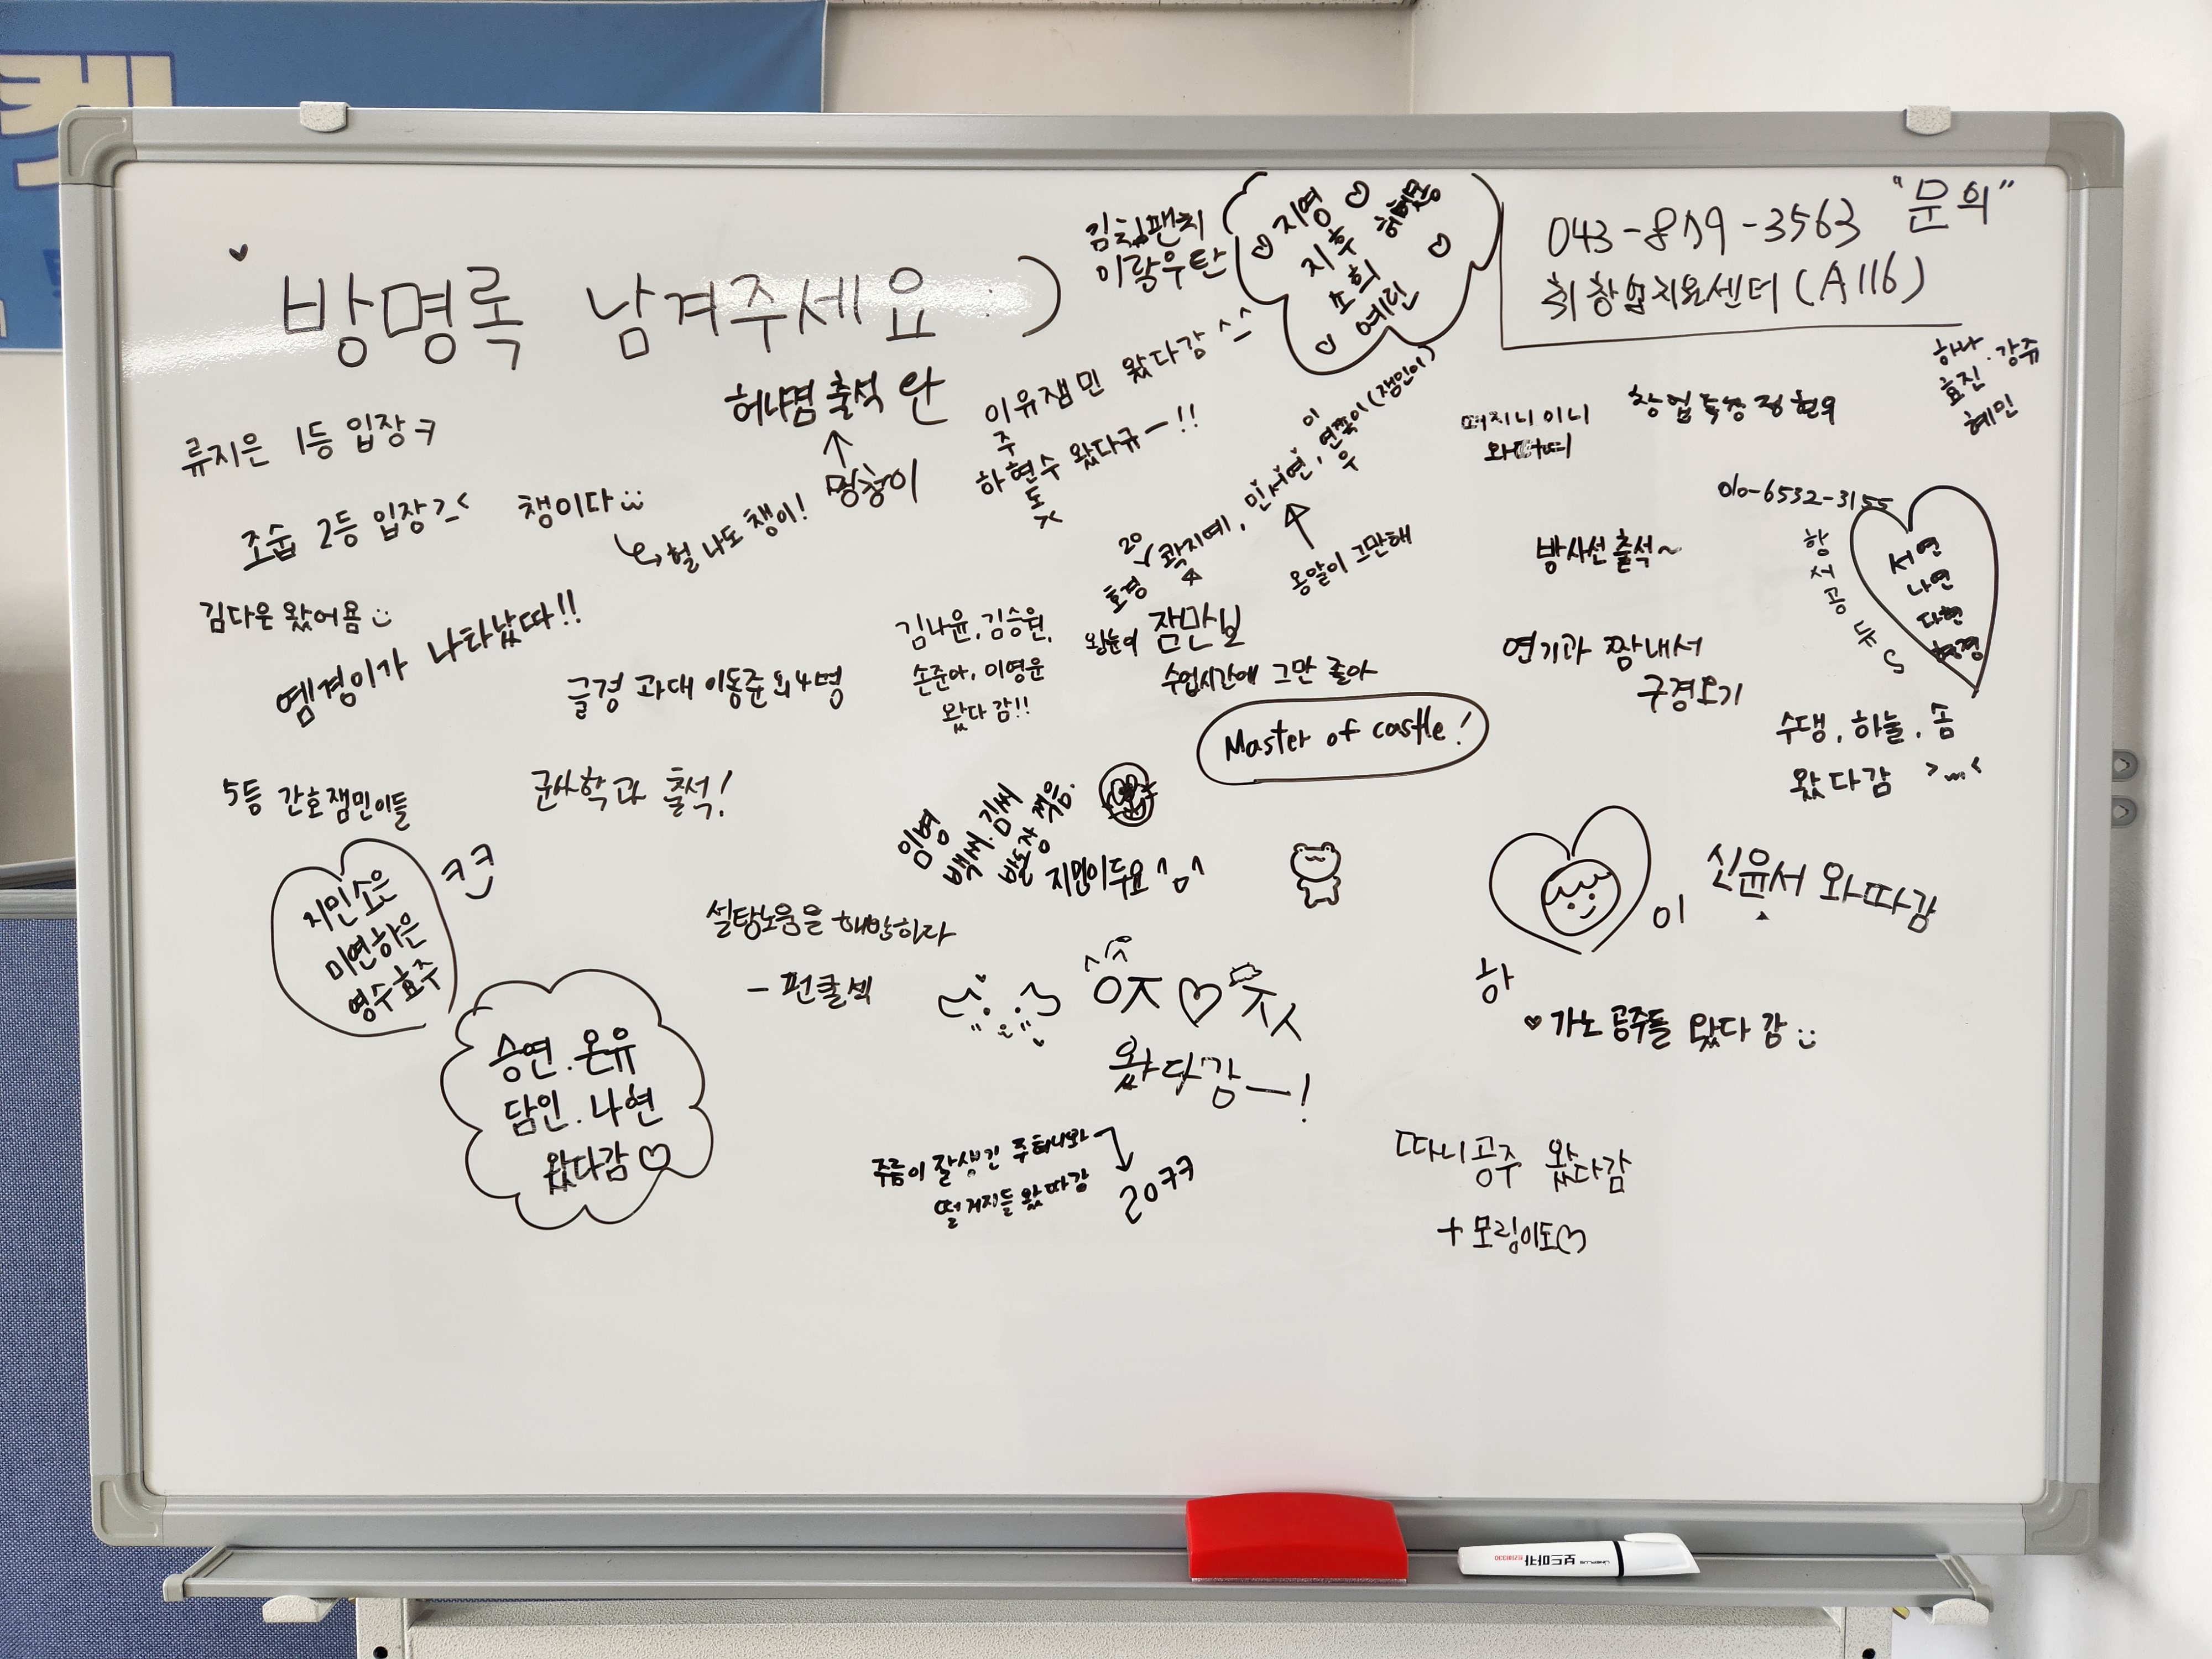 방명록 남겨주세요 :)
김칩팬치
이랑우탄
지영
지후
소희
예린
"문의"
043-859-3563
취창업지원센터(A116)
하나 . 강쥬
효진
혜민
류지은 1등 입장ㅋ
허냐겸 출석 완
↑
멍청이
이유잼민 왔다감 ^_^
하현수 왔다규ㅡ!!
주
도
ㅈ
창업
조숩 2등 입장
챙이다
헐 나도 챙이!
20
호경
콱지예, 민서연,
연쭉이(잼민이)
이
우
옹알이 그만해
010-6532-3155
항
서
공
뉴
S
서연
나연
다현
방사선 출석~
김다은 왔어욤
옘경이가 나타났따!!
글경 과대 이동준 외 4명
김나윤, 김승원,
손준아, 이영윤
왔다감!!
왕눈이 잠만보
수업시간에 그만 졸아
Master of castle!
연기과 짬내서
구경오기
수댕, 하늘, 솜
왔다감 >...<
5등 간호잼민이들
군사학과 출석!
지민소은
미연하은
영수효주
ㅋㅋ
임병
백씨.김씨
발도장 찍음.
지민이두요^o^
설탕노움을 해방하라
- 펀쿨섹
이
신윤서 와따감
하
가노 공주들 왔다감
왔다감ㅡ!
승연.온유
담인.나현
왔다감♡
주름이 잘생긴 주혀니와
떨거지들 왔따감
20ㅋㅋ
따니공주 왔다감
+ 모링이도♡
보드마카